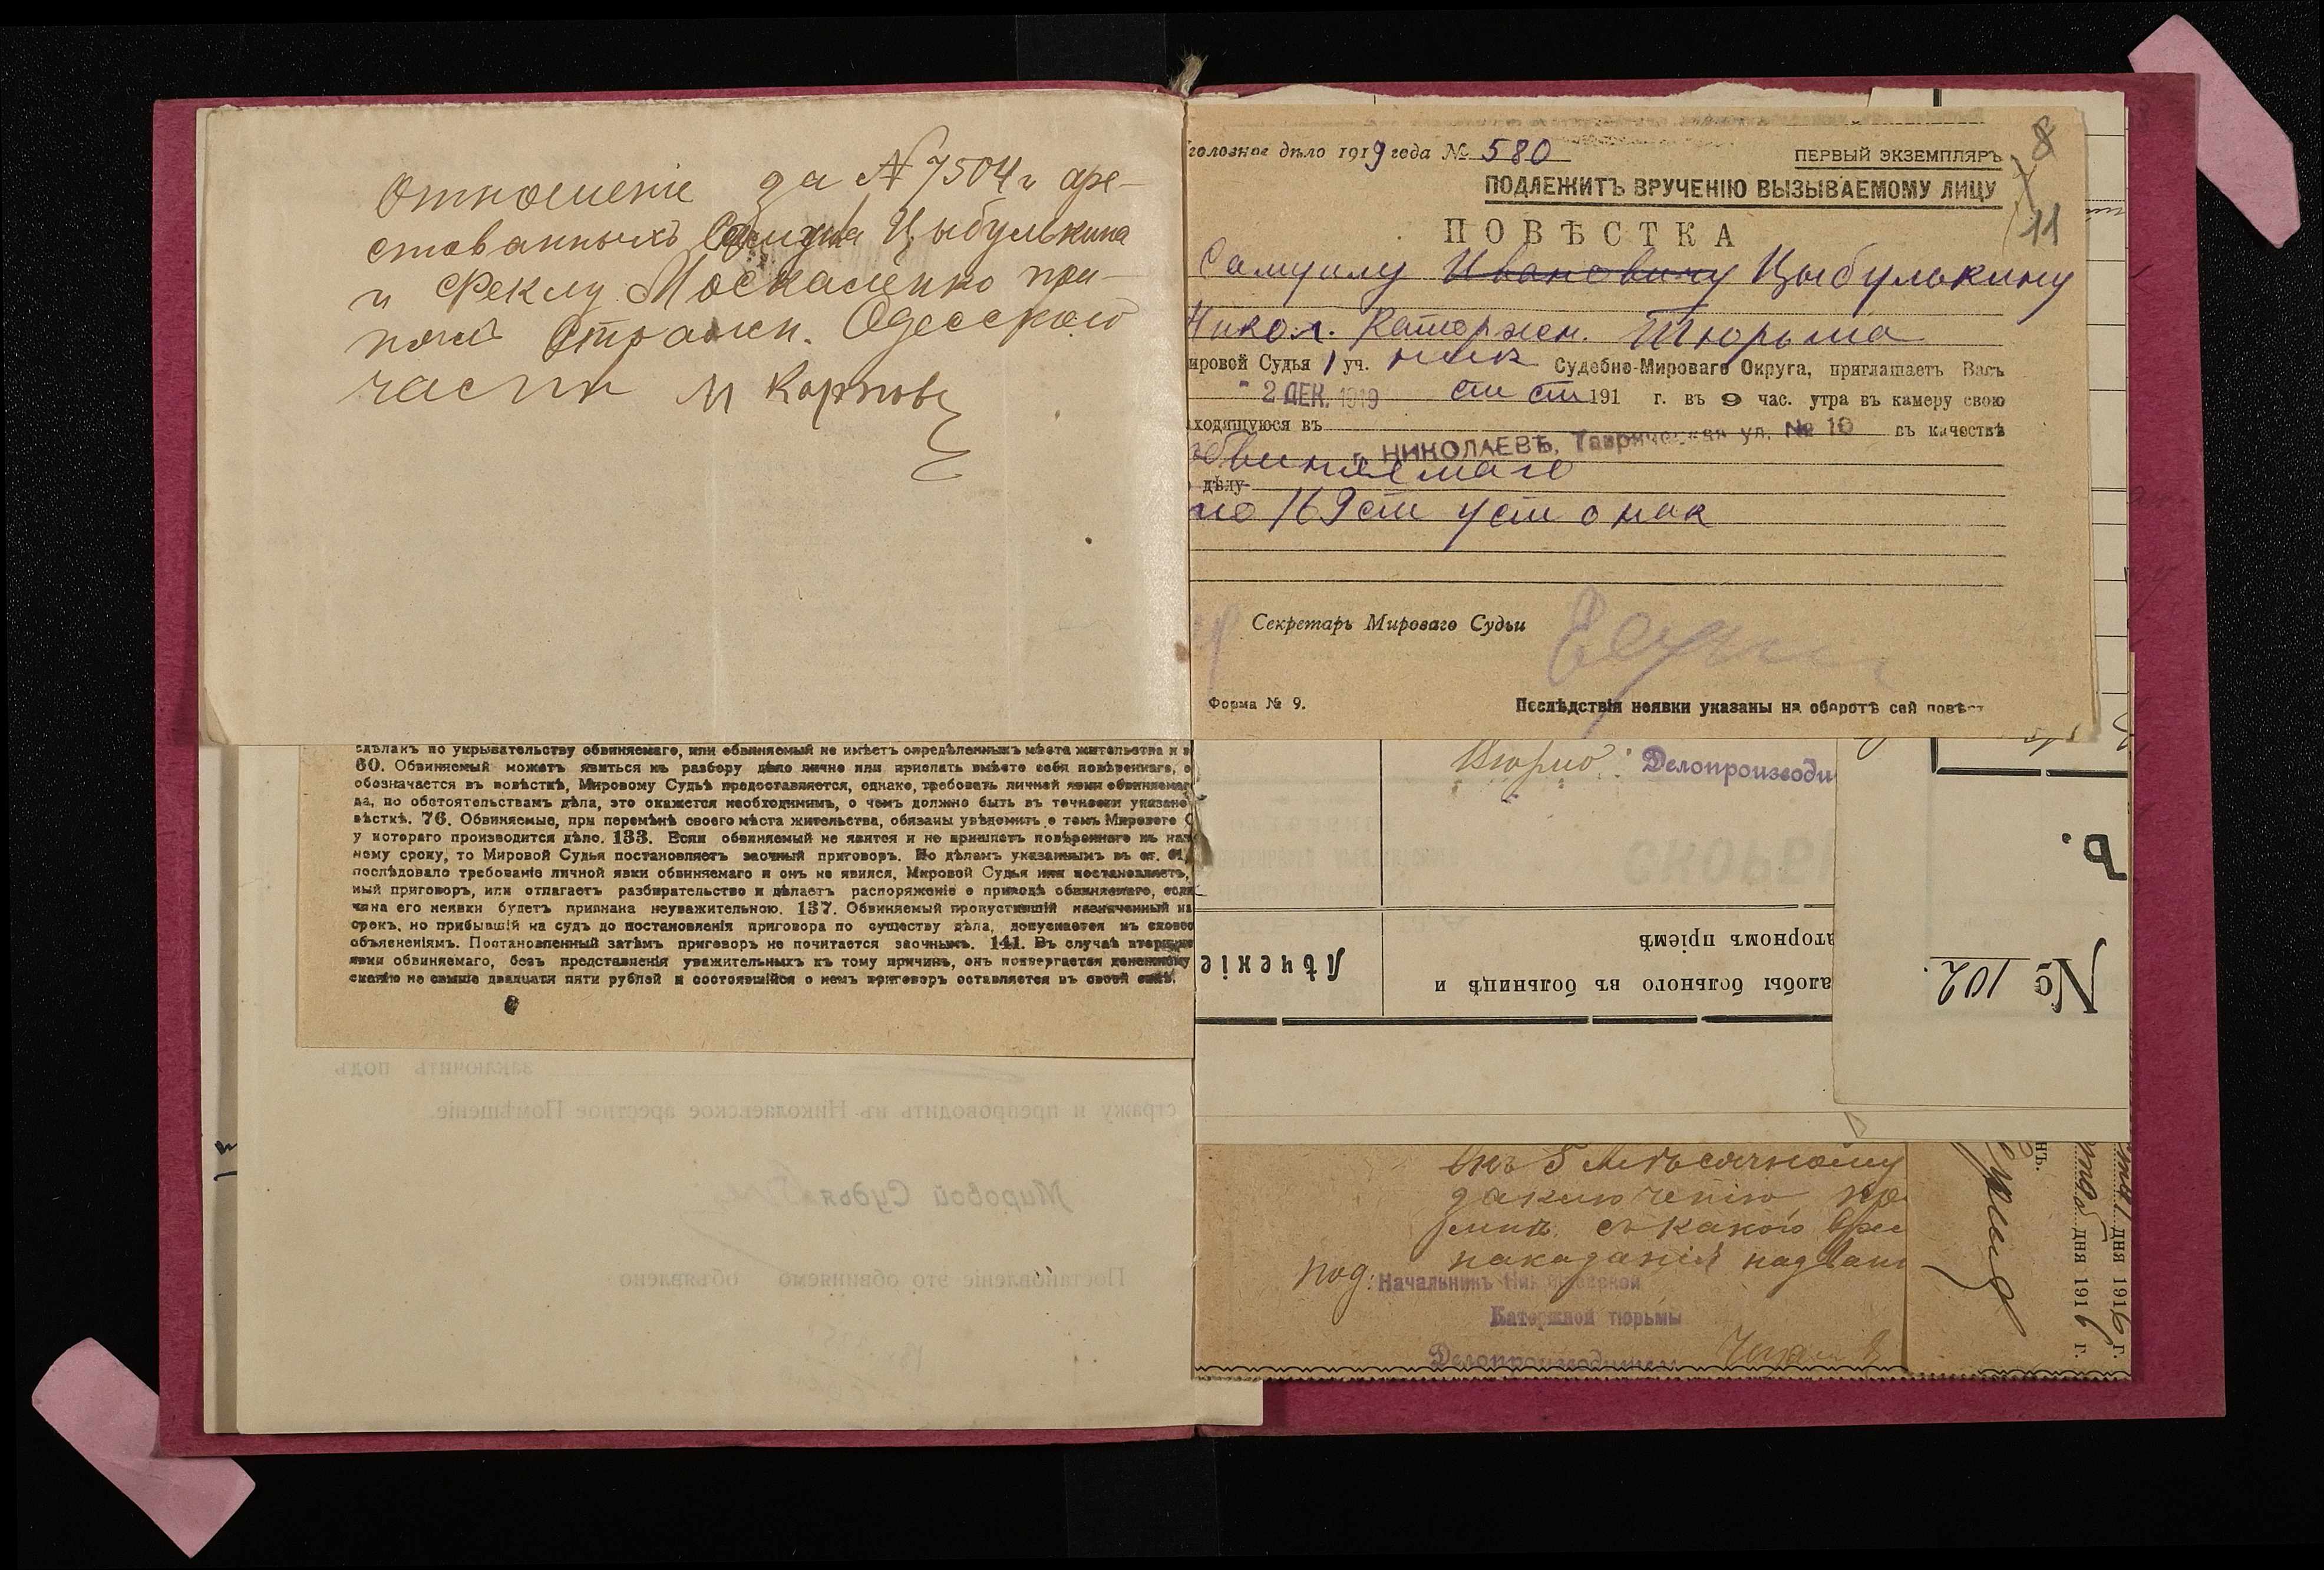 Отношеніе за № 7504 и аре-
стованныхъ Самуила Цыбулькина
и Феклу Москаленко при-
нялъ Стражн. Одесской
части М Карповъ
сдѣланъ по укрывательству обвиняемаго, или обвиняемый не имѣетъ опредѣленнаго мѣста жительства и
60. Обвиняемый можетъ явиться къ разбору дѣла лично или прислать вмѣсто себя повѣреннаго, о
обозначается въ повѣсткѣ, Мировому Судьѣ предоставляется, однако, требовать личной явки обвиняемаг
да, по обстоятельствамъ дѣла, это окажется необходимымъ, о чемъ должно быть въ точности указано
вѣсткѣ. 76. Обвиняемые, при перемѣнѣ своего мѣста жительства, обязаны увѣдомить о томъ Мирового С
у котораго производится дѣло. 133. Если обвиняемый не явится и не пришлетъ повѣреннаго къ наз
ному сроку, то Мировой Судья постановляетъ заочный приговоръ. По дѣламъ указаннымъ въ ст. 61,
послѣдовало требованіе личной явки обвиняемаго и онъ не явился, Мировой Судья или постановляетъ,
ный приговоръ, или отлагаетъ разбирательство и дѣлаетъ распоряженіе о приводѣ обвиняемаго, если
чина его неявки будетъ признана неуважительною. 137. Обвиняемый пропустившій назначенный на
срокъ, но прибывшій на судъ до постановленія приговора по существу дѣла, допускается къ словес
объясненіямъ. Постановленный затѣмъ приговоръ не почитается заочнымъ. 141. Въ случаѣ вторично
явки обвиняемаго, безъ представленія уважительныхъ къ тому причинъ, онъ подвергается денежному
сканію не свыше двадцати пяти рублей и состоявшійся о немъ приговоръ оставляется въ своей силѣ.
заключить подъ
стражу и препроводить въ Николаевское арестное Помѣщеніе.
Мировой Судья
Постановленіе это обвиняемо объявлено
головное дѣло 1919 года № 580
ПЕРВЫЙ ЭКЗЕМПЛЯРЪ
8
ПОДЛЕЖИТЪ ВРУЧЕНІЮ ВЫЗЫВАЕМОМУ ЛИЦУ
11
ПОВѢСТКА
Самуилу Ивановичу Цыбулькину
Никол. Каторжн. Тюрьма
ировой Судья 1 уч. Ник Судебно-Мироваго Округа, приглашаетъ Васъ
2 ДЕК. 1919 ст ст 191 г. въ 9 час. утра въ камеру свою
ходящуюся въ г. НИКОЛАЕВЪ, Таврическая ул. № 10 въ качествѣ
обвиняемаго
дѣлу
по 169 ст уст о нак
Секретарь Мироваго Судьи
Форма № 9.
Послѣдствія неявки указаны на оборотѣ сей повѣст
Делопроизводи
аторномъ пріемѣ
алобы больного въ больницѣ и
Лѣченіе
Ъ.
№ 102.
5 мѣсячному
заключенію
съ какого вре
наказанія надъ
Под. Начальникъ Николаевской
Каторжной тюрьмы
Делопроизводитель
дня 1916 г.
дня 1916 г.